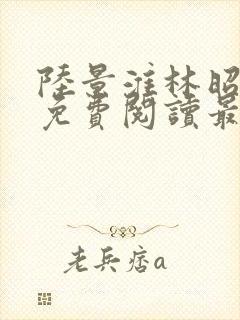 陸景淮林昭
免費閱讀最
老兵痞a